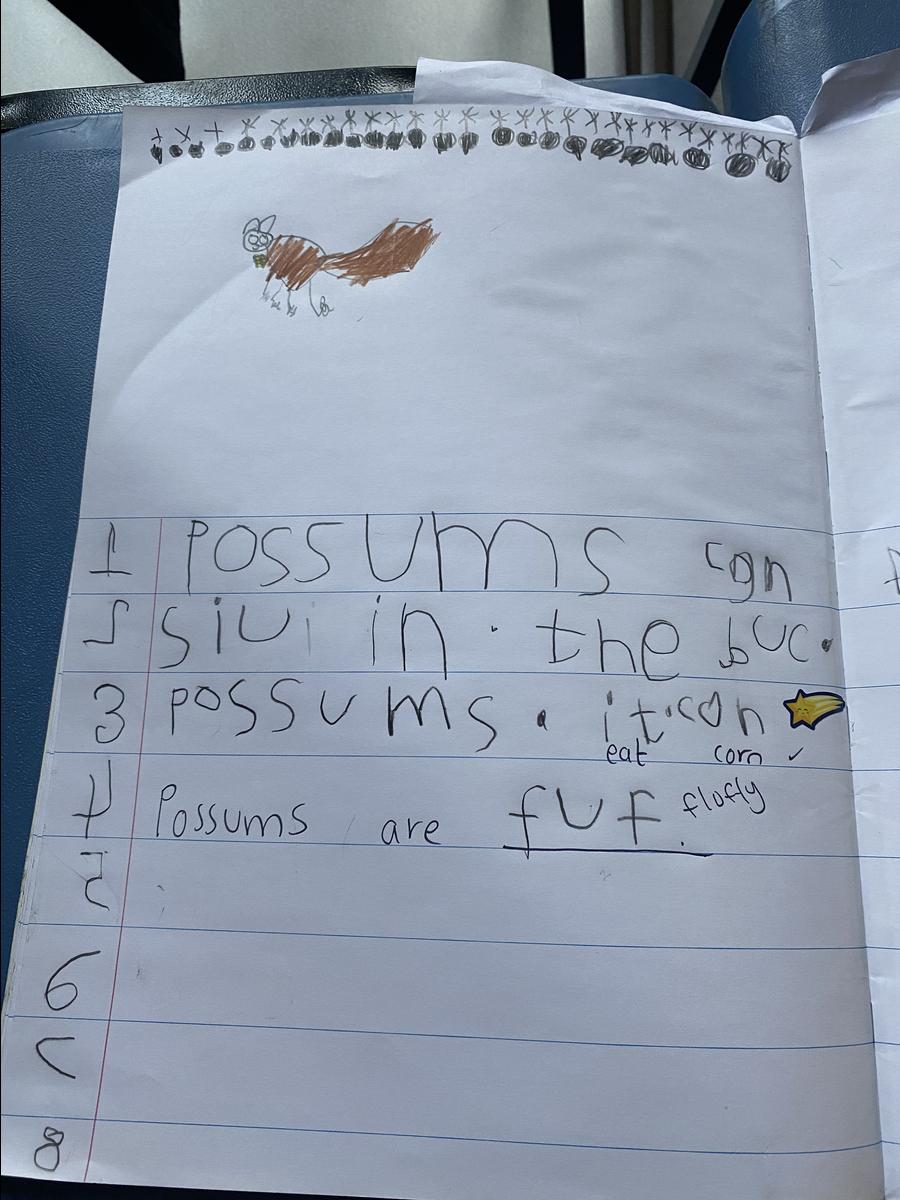 1 Possums can
2 sivi in. the buc.
3 possums. it.con
eat corn ✓
4 Possums are fuf. flofly
5
6
7
8